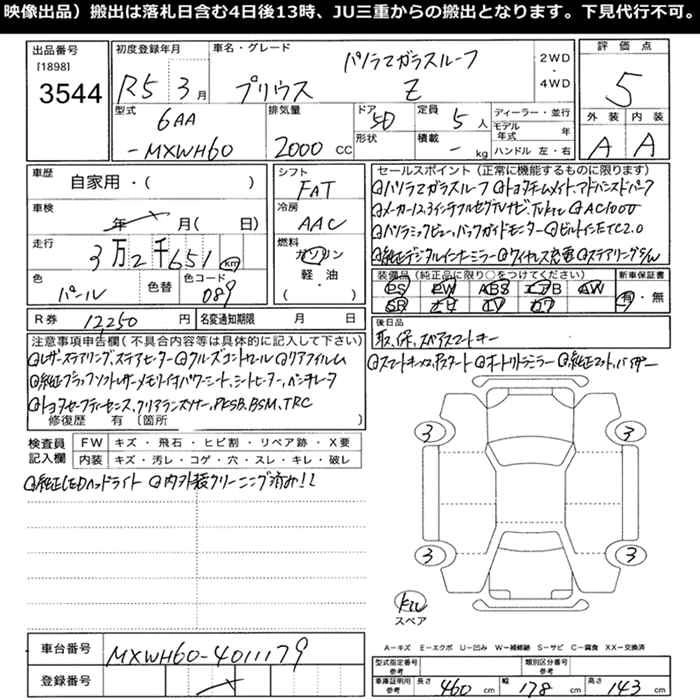 映像出品）搬出は落札日含む4日後13時、JU三重からの搬出となります。下見代行不可。
出品番号
[1898]
3544
初度登録年月
R5 3月
車名・グレード
パノラマガラスルーフ
プリウス Z
2WD
・
4WD
評価点
5
外装 内装
A A
型式
6AA
-MXWH60
排気量
2000 CC
ドア
5D
形状
定員
5人
積載
- kg
ディーラー・並行
モデル年式 年
ハンドル 左・右
車歴
自家用・( )
車検
年 月( 日)
走行
3万2千651 km
色
パール
色替
色コード
089
シフト
FAT
冷房
AAC
燃料
ガソリン
軽・油
( )
セールスポイント（正常に機能するものに限ります）
◎パノラマガラスルーフ ◎トヨタチームメイト,アドバンスドパーク
◎メーカー12.3インチフルセグTVナビ、TVkit ◎AC100V
◎パノラミックビュー,バックガイドモニター ◎ビルトインETC2.0
◎純正デジタルインナーミラー ◎ワイヤレス充電 ◎ステアリングSW
装備品（純正品に限り○をつけてください）
PS PW ABS エアB AW
SR カワ TV ナビ
新車保証書
有・無
R券 12250円
名変通知期限 月 日
後日品
取、保、スペアスマートキー
注意事項申告欄（不具合内容等は具体的に記入して下さい）
◎レザーステアリング、ステアヒーター ◎クルーズコントロール ◎リアフィルム
◎純正ブラックソフトレザーメモリー付パワーシート、シートヒーター、ベンチレータ
◎トヨタセーフティーセンス、クリアランスソナー,PKSB,BSM,TRC
修復歴 有〔箇所
◎スマートキー×2,Pスタート ◎オートリトラミラー ◎純正マット,バイザー
検査員記入欄
FW キズ・飛石・ヒビ割・リペア跡・X要
内装 キズ・汚レ・コゲ・穴・スレ・キレ・破レ
◎純正LEDヘッドライト ◎内外装クリーニング済み!!
3 3
3 3
キット
スペア
A－キズ E－エクボ U－凹み W－補修跡 S－サビ C－腐食 XX－交換済
車台番号
MXWH60-4011179
登録番号
型式指定番号
参考
類別区分番号
参考
車庫証明用
参考
長さ 460 cm
幅 178 cm
高さ 143 cm